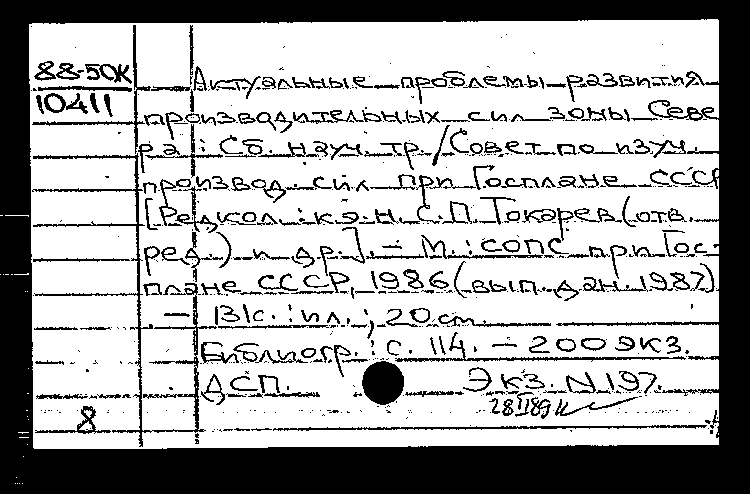 88-50К
10411
Актуальные проблемы развития
производительных сил зоны Севе
ра : Сб. науч. тр./Совет по изуч.
производ. сил при Госплане СССР
[Редкол.: к.э.н. С.П. Токарев (отв.
ред.) и др.]. – М. : СОПС при Гос-
плане СССР, 1986 (вып. дан. 1987)
. – 131с. : ил. ; 20 см.
Библиогр. : с. 114. – 200 экз.
ДСП. Экз. N 197.
28 II 89
8